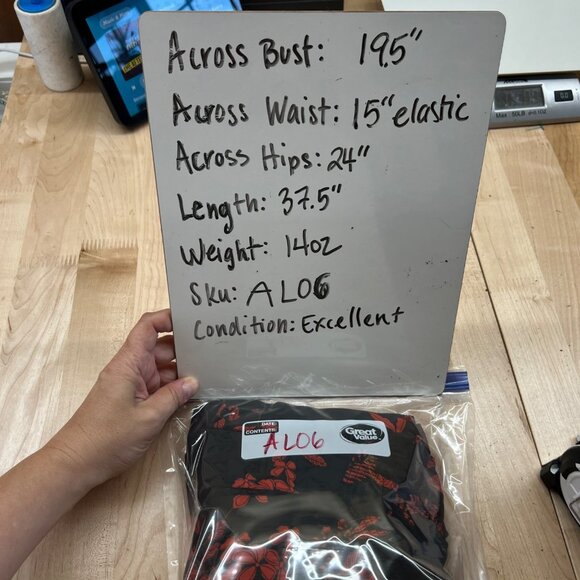 Across Bust: 19.5"
Across Waist: 15" elastic
Across Hips: 24"
Length: 37.5"
Weight: 14oz
Sku: AL06
Condition: Excellent
DATE:
CONTENTS:
Great Value
AL06